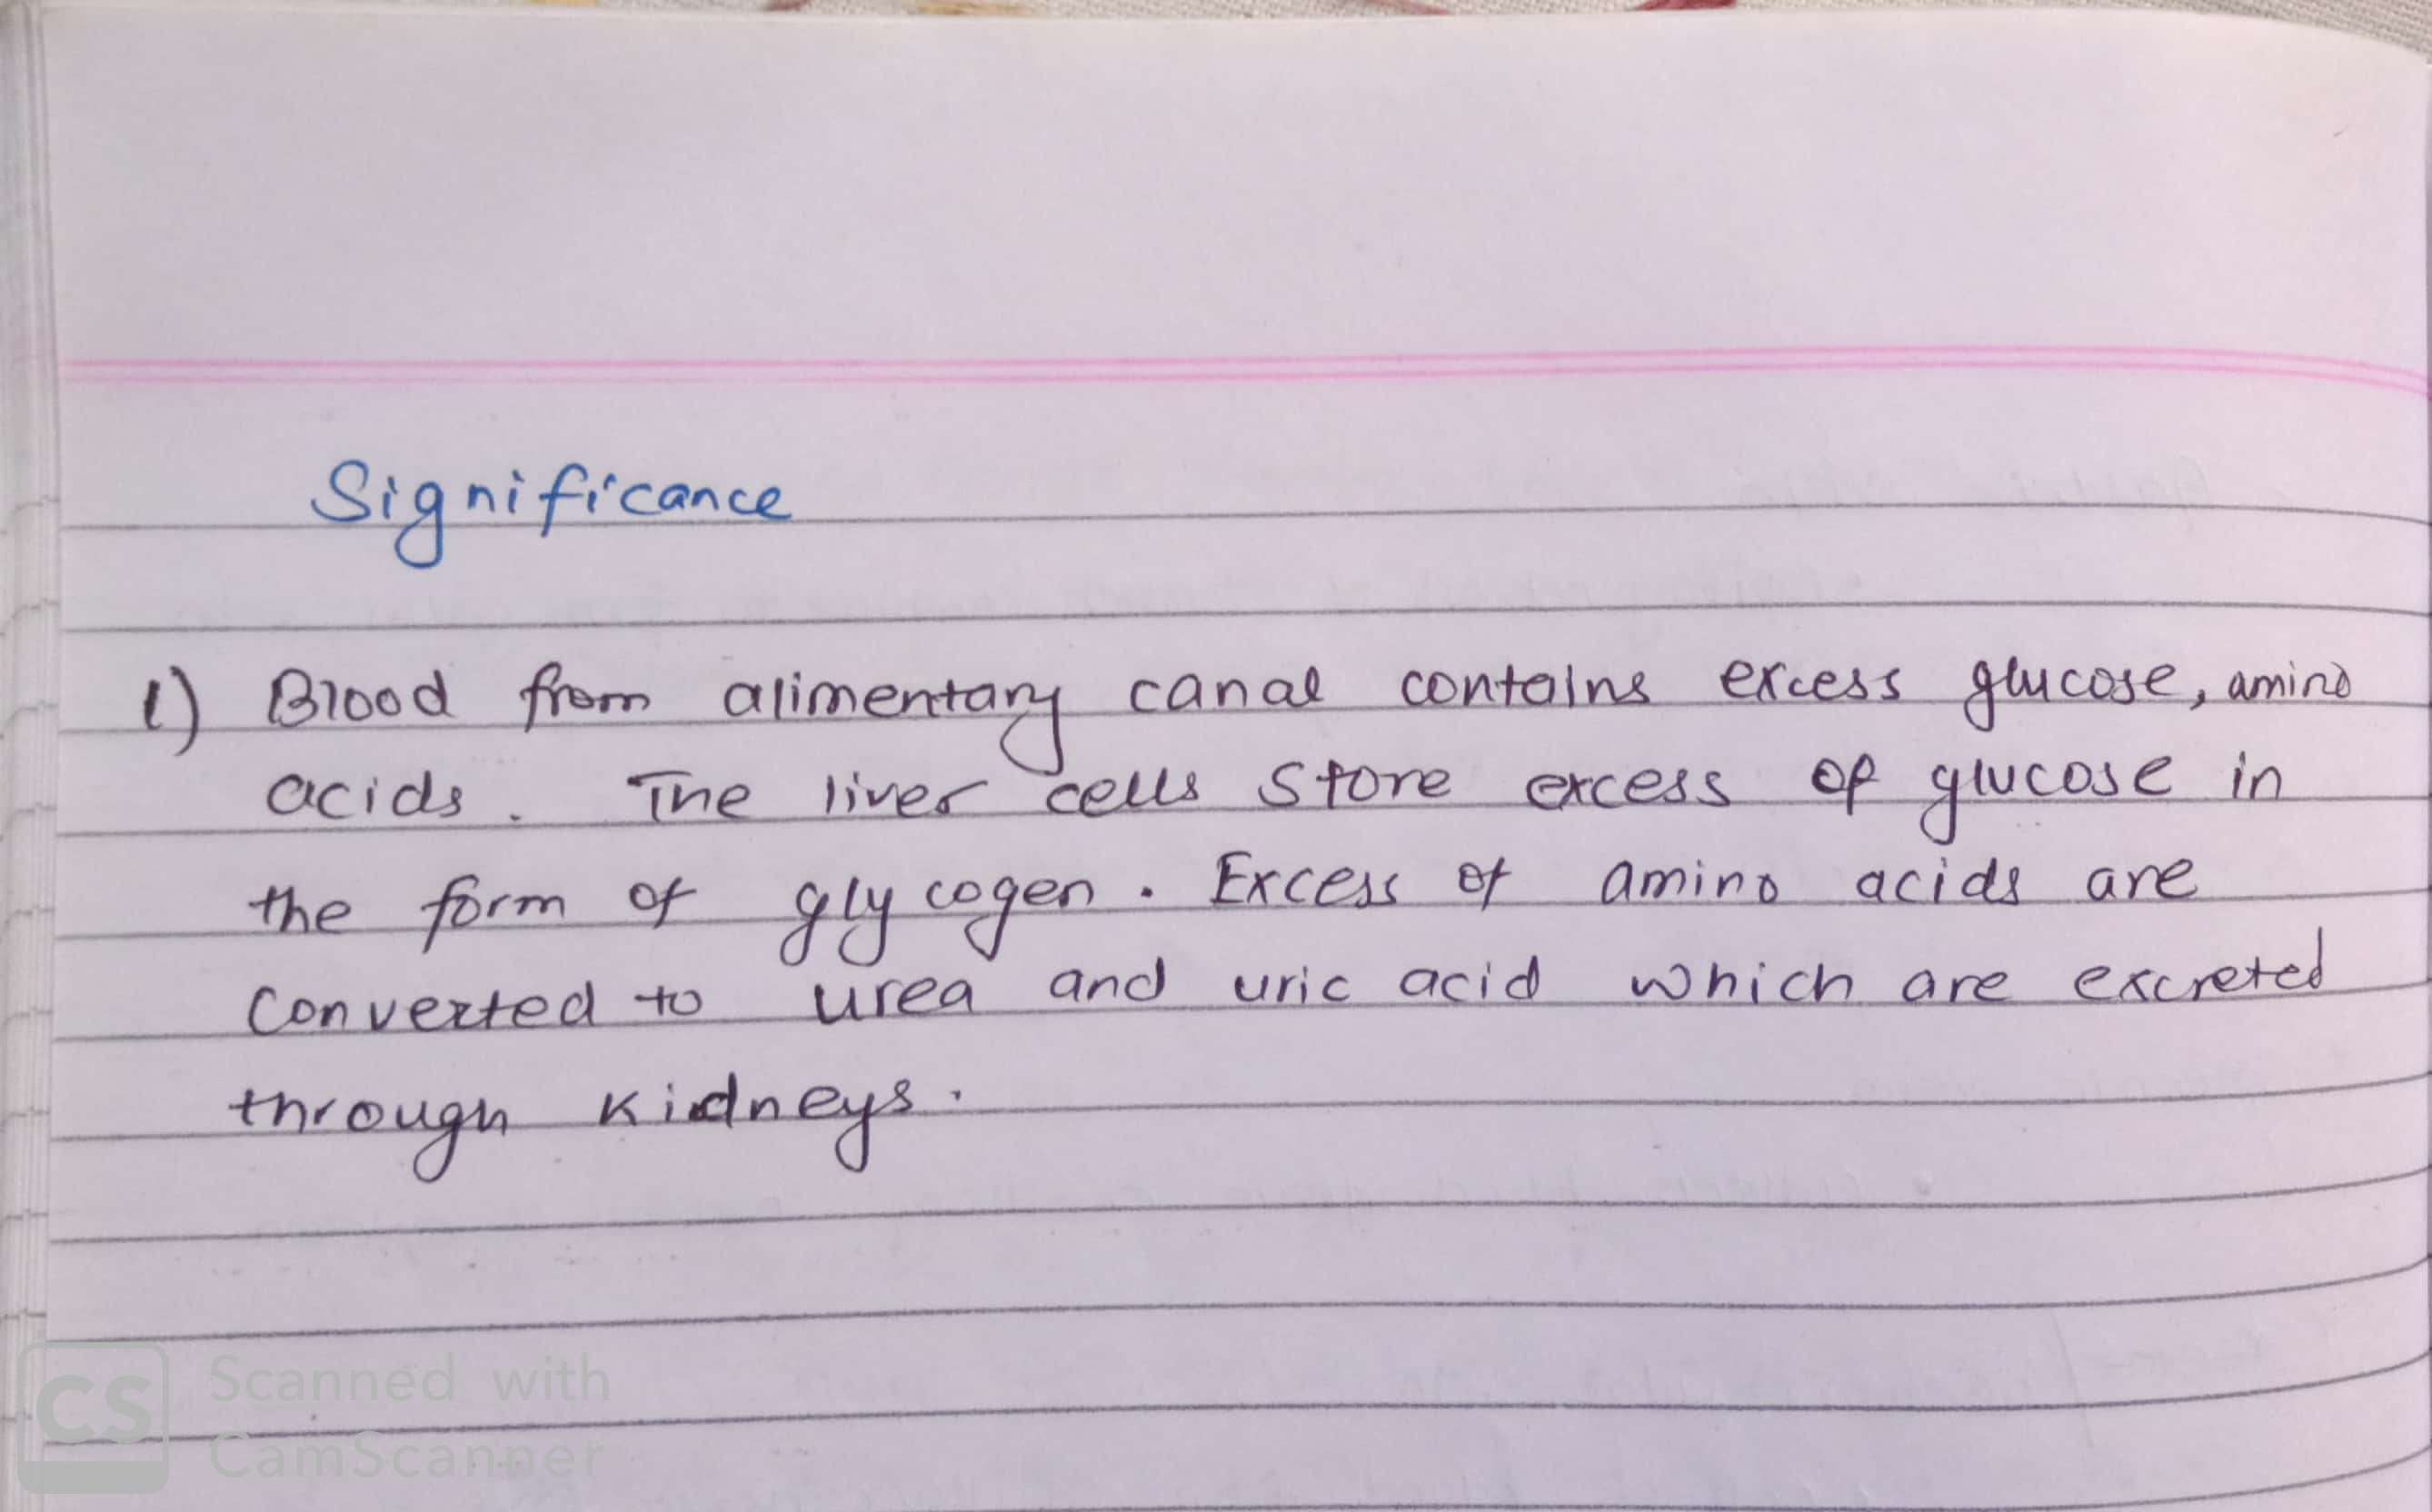 Significance
1) Blood from alimentary canal contains excess glucose, amino
acids. The liver cells store excess of glucose in
the form of glycogen. Excess of amino acids are
converted to urea and uric acid which are excreted
through kidneys.
CS Scanned with
CamScanner